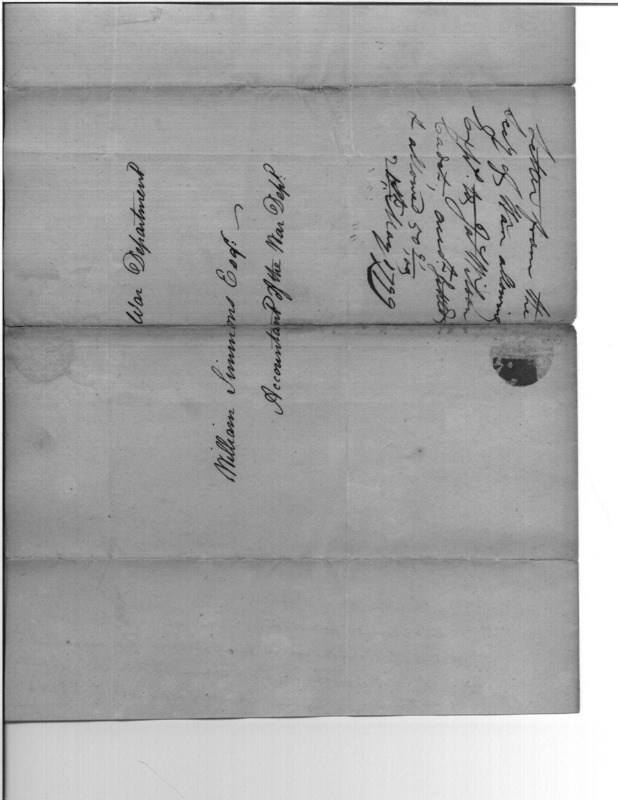 War Department
William Simmons Esqr.
Accountant of the War Dept.
Letter from the
Secy of War allowing
Expe. to Jas Wilson
Cadet,
& allowed
May 1799